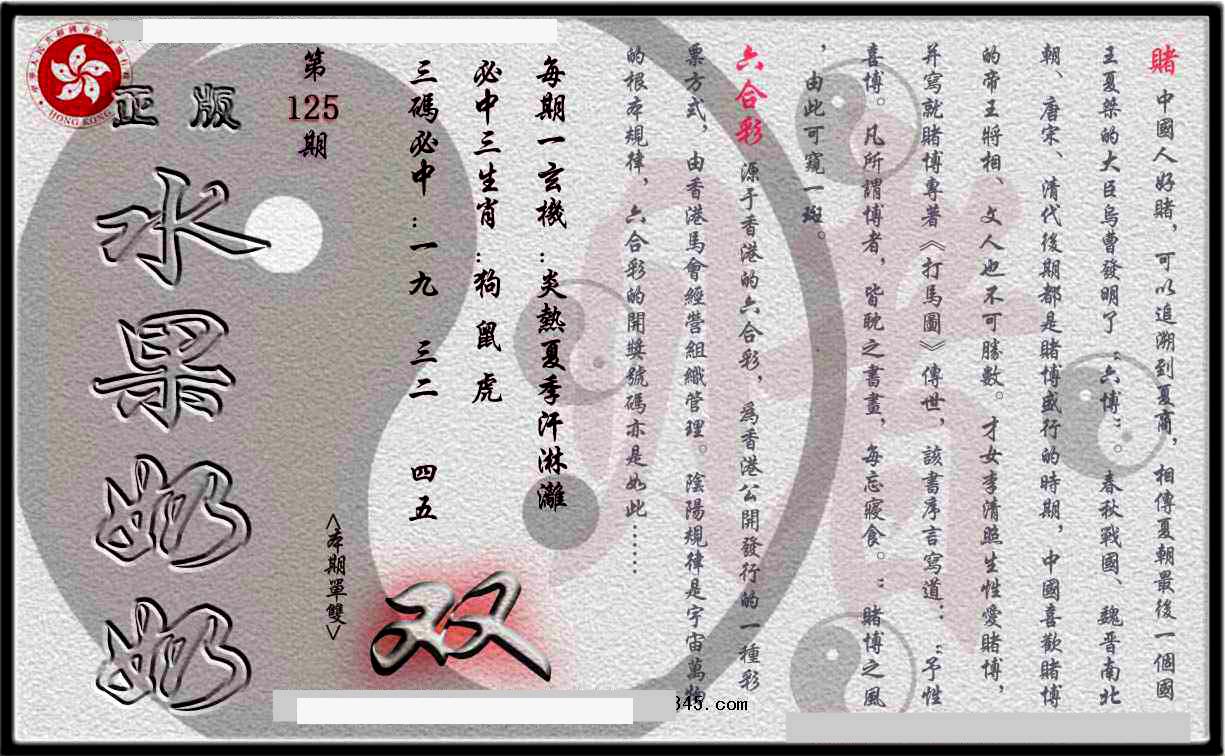 賭 中國人好賭，可以追溯到夏商，相傳夏朝最後一個國
王夏桀的大臣烏曹發明了“六博”。春秋戰國、魏晋南北
朝、唐宋、清代後期都是賭博盛行的時期，中國喜歡賭博
的帝王將相、文人也不可勝數。才女李清照生性愛賭博，
并寫就賭博專著《打馬圖》傳世，該書序言寫道：“予性
喜博。凡所謂博者，皆耽之書畫，每忘寢食。”賭博之風
，由此可窺一斑。
六合彩 源于香港的六合彩，爲香港公開發行的一種彩
票方式，由香港馬會經營組織管理。陰陽規律是宇宙萬物
的根本規律，六合彩的開獎號碼亦是如此……
每期一玄機：炎熱夏季汗淋灕
必中三生肖：狗 鼠 虎
三碼必中：一九 三二 四五
<本期單雙>
双
第125期
正版
水果奶奶
HONG KONG
345.com